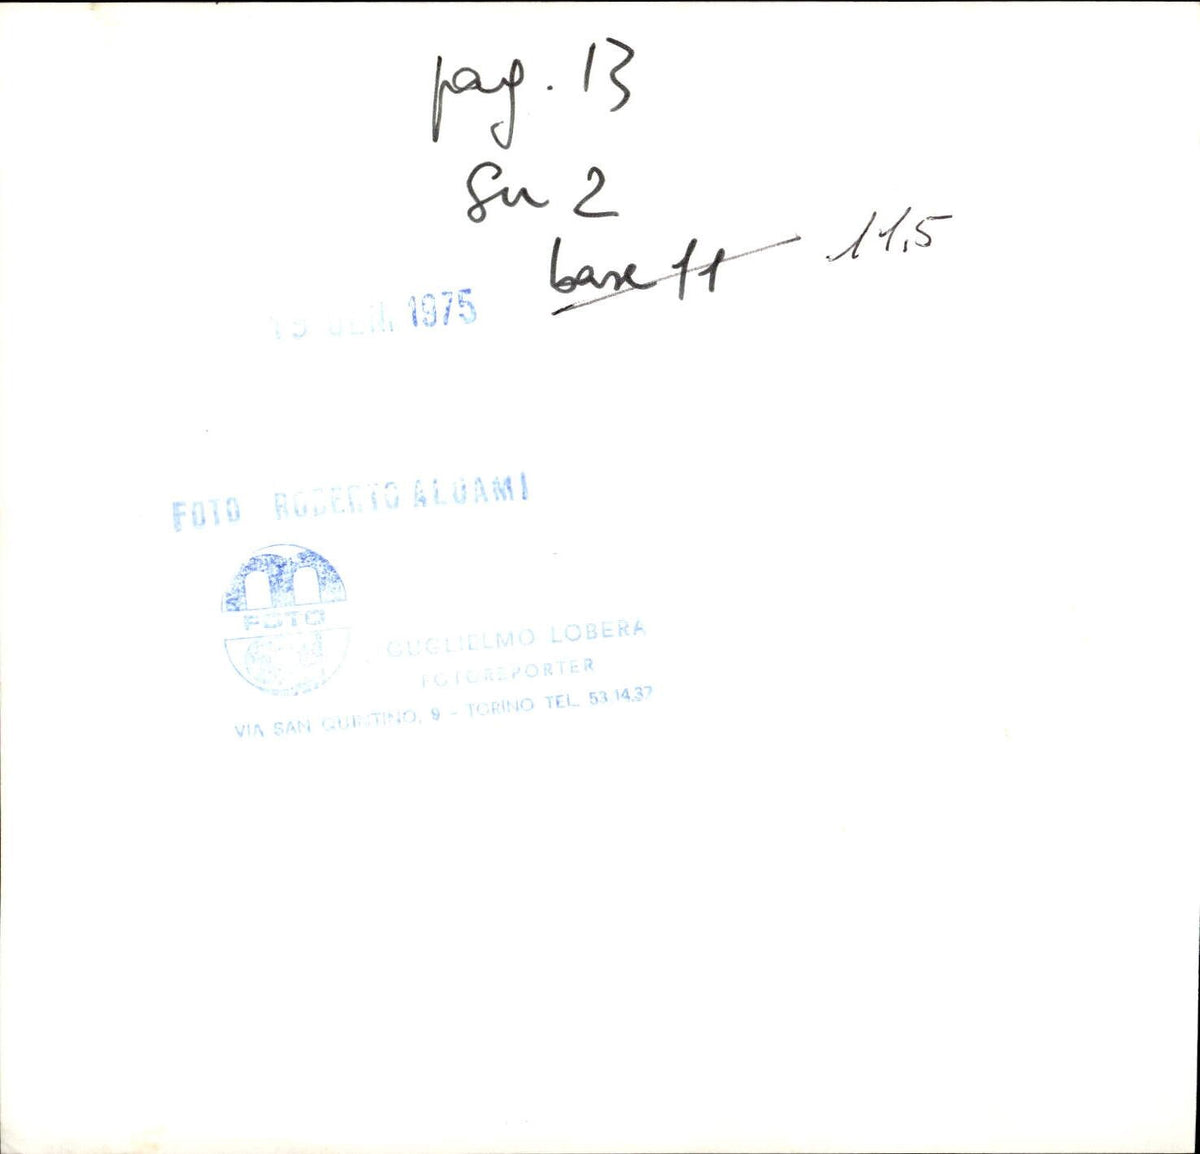 pag. 13
su 2
base 11 11,5
1975
FOTO ROBERTO
FOTO
GUGLIELMO LOBERA
FOTOREPORTER
VIA SAN QUINTINO, 9 - TORINO TEL. 53.14.37